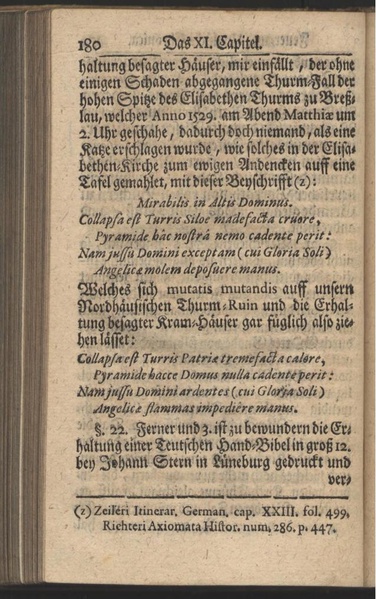 180 Das XI. Capitel.
haltung besagter Häuser, mir einfällt, der ohne
einigen Schaden abgegangene Thurm-Fall der
hohen Spitze des Elisabethen Thurms zu Breß-
lau, welcher Anno 1529. am Abend Matthiæ um
2. Uhr geschahe, dadurch doch niemand, als eine
Katze erschlagen wurde, wie solches in der Elisa-
bethen-Kirche zum ewigen Andencken auff eine
Tafel gemahlet, mit dieser Beyschrifft (z):
Mirabilis in Altis Dominus.
Collapsa est Turris Siloe madefacta cruore,
Pyramide hac nostrâ nemo cadente perit:
Nam jussu Domini exceptam (cui Gloria Soli)
Angelicæ molem deposuere manus.
Welches sich mutatis mutandis auff unsern
Nordhäusischen Thurm-Ruin und die Erhal-
tung besagter Kram-Häuser gar füglich also zie-
hen lässet:
Collapsa est Turris Patriæ tremefacta calore,
Pyramide hacce Domus nulla cadente perit:
Nam jussu Domini ardentes (cui Gloria Soli)
Angelicæ flammas impediêre manus.
§. 22. Ferner und 3. ist zu bewundern die Er-
haltung einer Teutschen Hand-Bibel in groß 12.
bey Johann Stern in Lüneburg gedruckt und
ver-
(z) Zeilêri Itinerar. German. cap. XXIII. fol. 499.
Richteri Axiomata Histor. num. 286. p. 447.